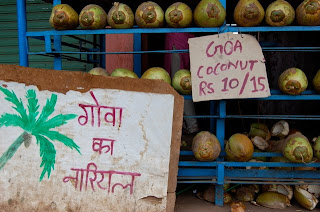 GOA
COCONUT
RS 10/15
गोवा
का
नारियल